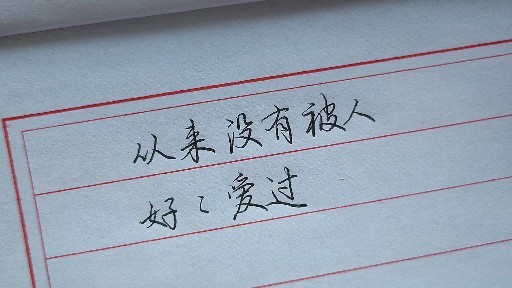 从来没有被人
好々爱过